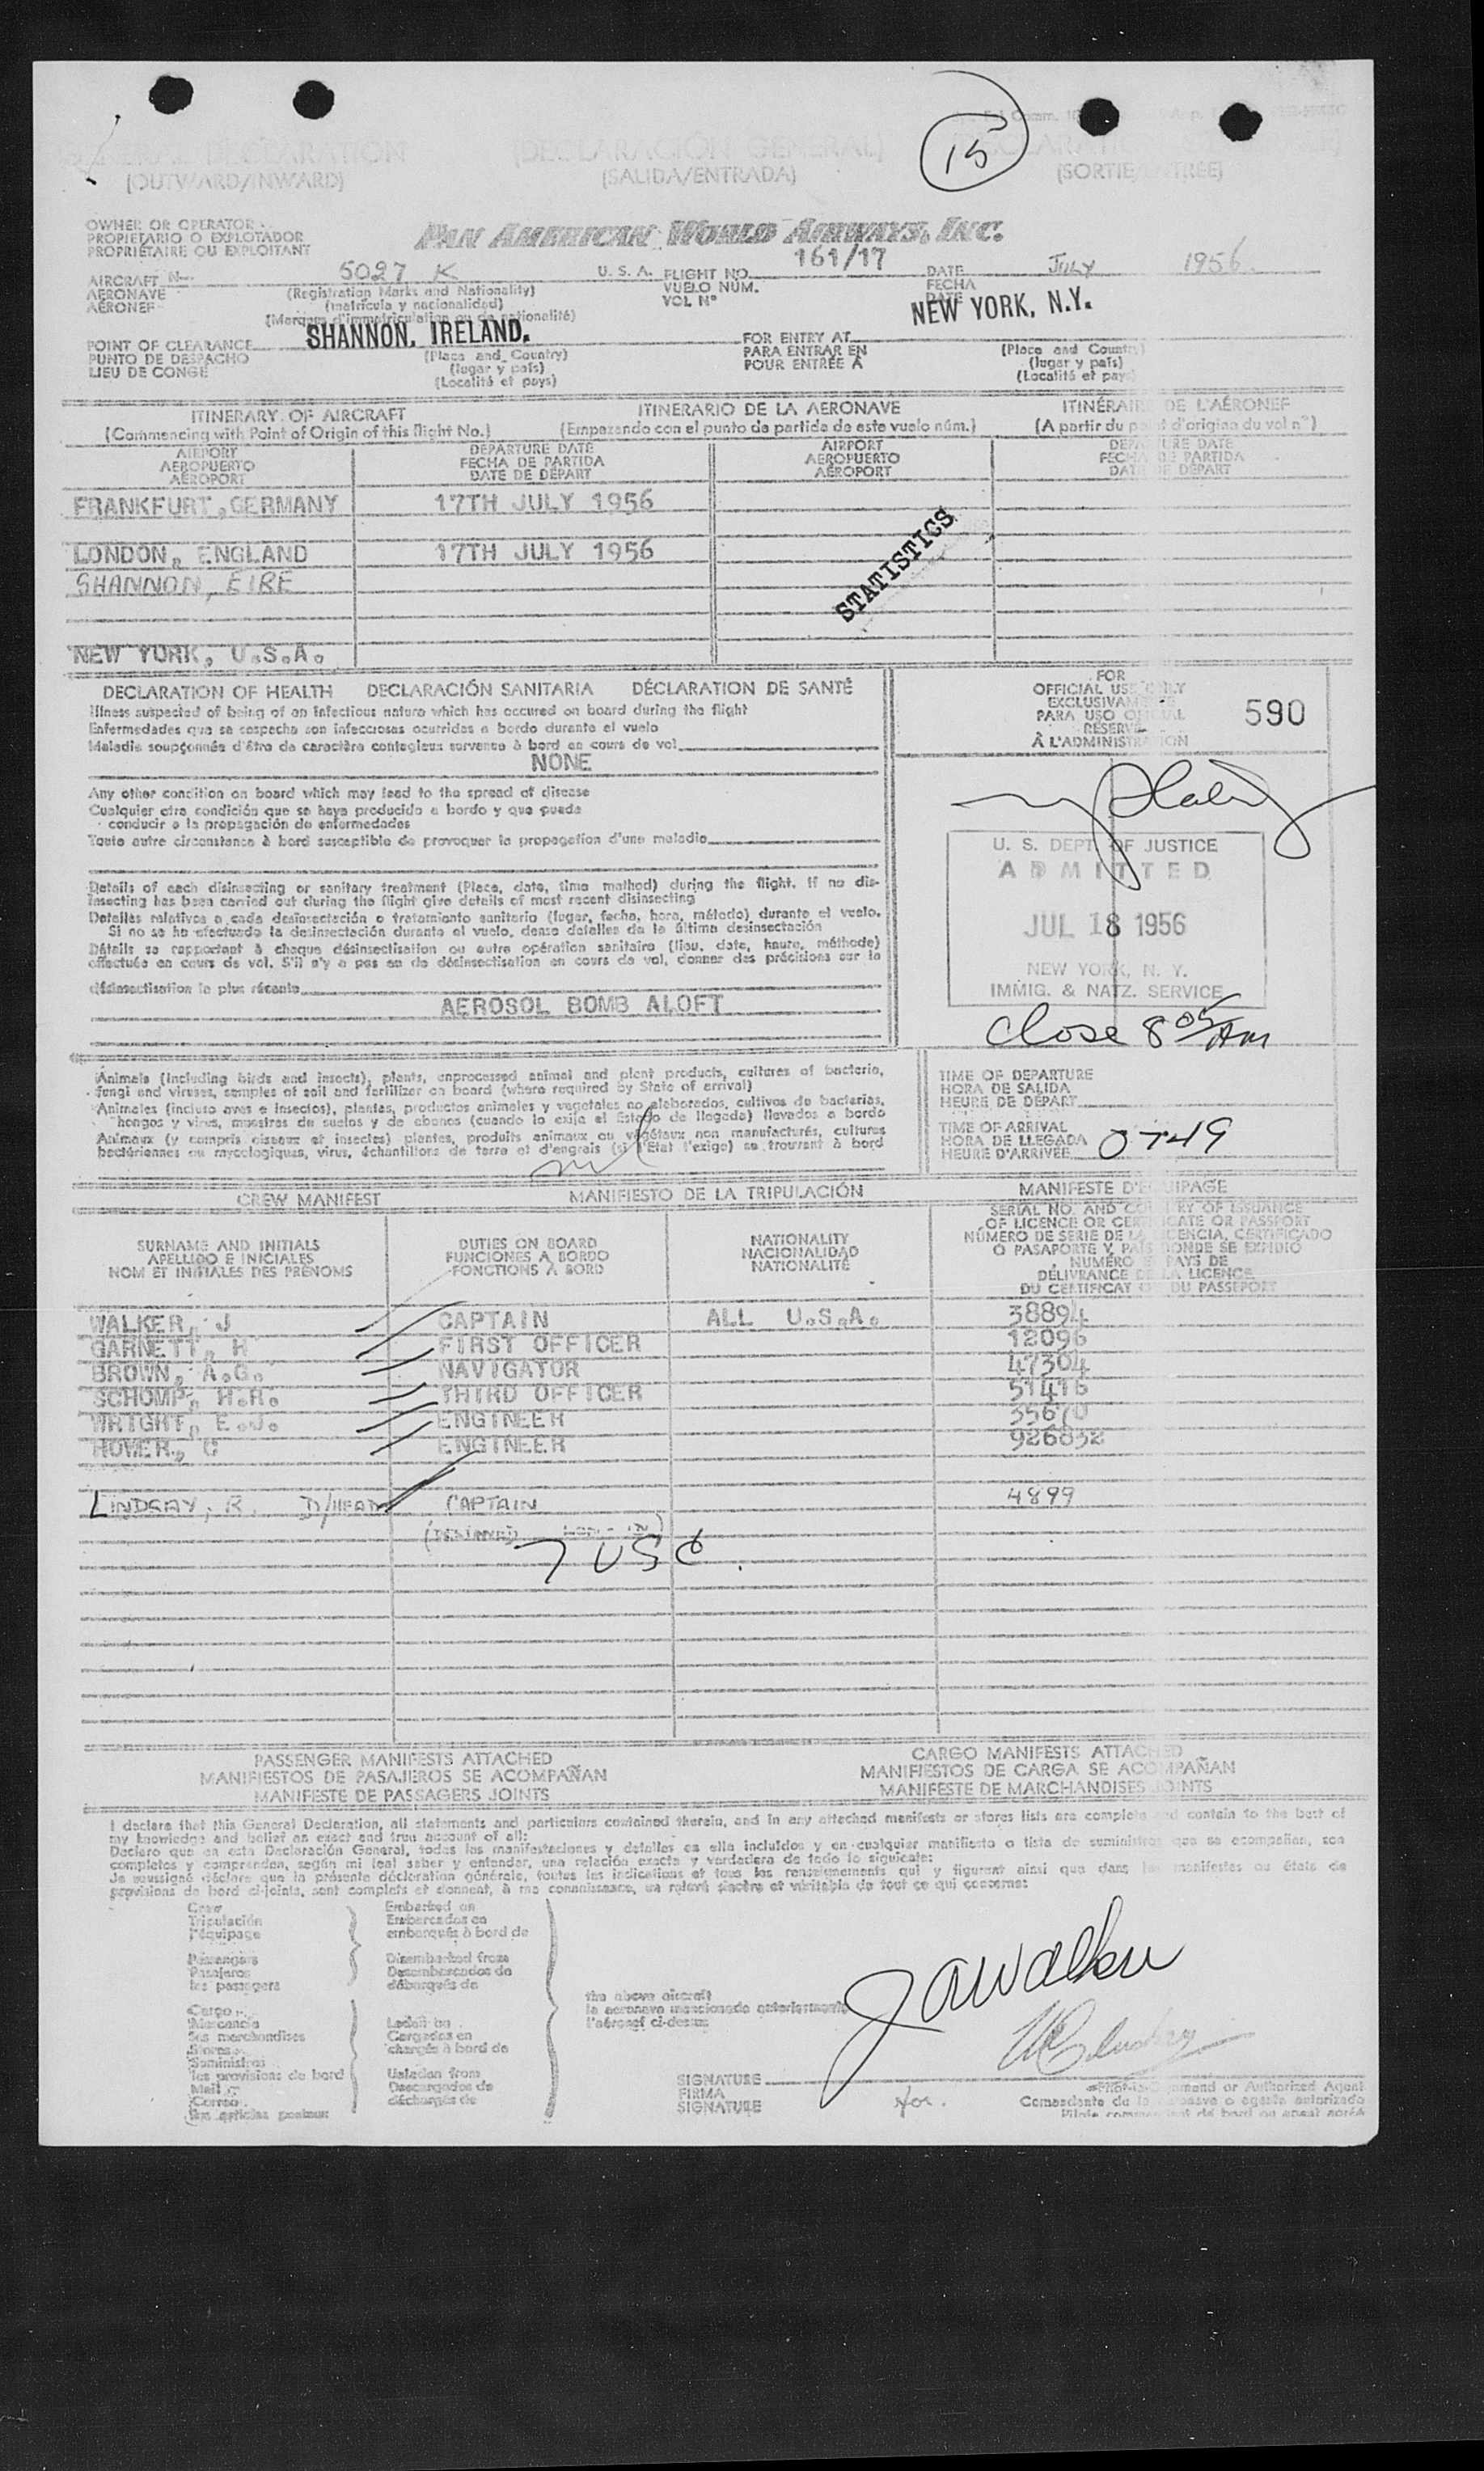 15
GENERAL DECLARATION (DECLARACIÓN GENERAL)
(OUTWARD/INWARD) (SALIDA/ENTRADA) (SORTIE/ENTRÉE)
OWNER OR OPERATOR
PROPIETARIO O EXPLOTADOR
PROPRIÉTAIRE OU EXPLOITANT
PAN AMERICAN WORLD AIRWAYS, INC.
AIRCRAFT N 5027 K U. S. A. FLIGHT NO. 161/17 DATE JULY 1956.
AERONAVE (Registration Marks and Nationality) VUELO NÚM. FECHA
AÉRONEF (matrícula y nacionalidad) VOL Nº DATE
(Marques d'immatriculation ou de nationalité)
POINT OF CLEARANCE SHANNON, IRELAND. FOR ENTRY AT NEW YORK, N.Y.
PUNTO DE DESPACHO (Place and Country) PARA ENTRAR EN (Place and Country)
LIEU DE CONGÉ (lugar y país) POUR ENTRÉE À (lugar y país)
(Localité et pays) (Localité et pays)
ITINERARY OF AIRCRAFT ITINERARIO DE LA AERONAVE ITINÉRAIRE DE L'AÉRONEF
(Commencing with Point of Origin of this flight No.) (Empezando con el punto de partida de este vuelo núm.) (A partir du point d'origine du vol nº)
AIRPORT DEPARTURE DATE AIRPORT DEPARTURE DATE
AEROPUERTO FECHA DE PARTIDA AEROPUERTO FECHA DE PARTIDA
AÉROPORT DATE DE DÉPART AÉROPORT DATE DE DÉPART
FRANKFURT, GERMANY 17TH JULY 1956
LONDON, ENGLAND 17TH JULY 1956
SHANNON, EIRE
STATISTICS
NEW YORK, U.S.A.
DECLARATION OF HEALTH DECLARACIÓN SANITARIA DÉCLARATION DE SANTÉ
Illness suspected of being of an infectious nature which has occured on board during the flight
Enfermedades que se sospecha son infecciosas ocurridas a bordo durante el vuelo
Maladie soupçonnée d'être de caractère contagieux survenue à bord en cours de vol
NONE
FOR
OFFICIAL USE ONLY
EXCLUSIVAMENTE
PARA USO OFICIAL
RÉSERVÉ
À L'ADMINISTRATION
590
Any other condition on board which may lead to the spread of disease
Cualquier otra condición que se haya producido a bordo y que pueda
conducir a la propagación de enfermedades
Toute autre circonstance à bord susceptible de provoquer la propagation d'une maladie
U. S. DEPT. OF JUSTICE
ADMITTED
JUL 18 1956
NEW YORK, N. Y.
IMMIG. & NATZ. SERVICE
close 8 05 Am
Details of each disinsecting or sanitary treatment (Place, date, time method) during the flight. If no dis-
insecting has been carried out during the flight give details of most recent disinsecting
Detalles relativos a cada desinsectación o tratamiento sanitario (lugar, fecha, hora, método) durante el vuelo.
Si no se ha efectuado la desinsectación durante el vuelo, dense detalles de la última desinsectación
Détails se rapportant à chaque désinsectisation ou autre opération sanitaire (lieu, date, heure, méthode)
effectuée en cours de vol. S'il n'y a pas eu de désinsectisation en cours de vol, donner des précisions sur la
désinsectisation la plus récente
AEROSOL BOMB ALOFT
Animals (including birds and insects), plants, unprocessed animal and plant products, cultures of bacteria,
fungi and viruses, samples of soil and fertilizer on board (where required by State of arrival)
Animales (incluso aves e insectos), plantas, productos animales y vegetales no elaborados, cultivos de bacterias,
hongos y virus, muestras de suelos y de abonos (cuando lo exija el Estado de llegada) llevados a bordo
Animaux (y compris oiseaux et insectes) plantes, produits animaux ou végétaux non manufacturés, cultures
bactériennes ou mycologiques, virus, échantillons de terre et d'engrais (si l'État l'exige) se trouvant à bord
TIME OF DEPARTURE
HORA DE SALIDA
HEURE DE DÉPART
TIME OF ARRIVAL
HORA DE LLEGADA 0749
HEURE D'ARRIVÉE
CREW MANIFEST MANIFIESTO DE LA TRIPULACIÓN MANIFESTE D'ÉQUIPAGE
SURNAME AND INITIALS
APELLIDO E INICIALES
NOM ET INITIALES DES PRÉNOMS
DUTIES ON BOARD
FUNCIONES A BORDO
FONCTIONS À BORD
NATIONALITY
NACIONALIDAD
NATIONALITÉ
SERIAL NO. AND COUNTRY OF ISSUANCE
OF LICENCE OR CERTIFICATE OR PASSPORT
NÚMERO DE SERIE DE LA LICENCIA, CERTIFICADO
O PASAPORTE Y PAÍS DONDE SE EXPIDIÓ
NUMÉRO ET PAYS DE
DÉLIVRANCE DE LA LICENCE
DU CERTIFICAT OU DU PASSEPORT
WALKER, J CAPTAIN ALL U.S.A. 38894
GARNETT, H FIRST OFFICER 12096
BROWN, A.G. NAVIGATOR 47304
SCHOMP, H.R. THIRD OFFICER 51416
WRIGHT, E.J. ENGINEER 35670
HOVER, C ENGINEER 926832
LINDSAY, R. D/HEAD CAPTAIN 4899
7 USC.
PASSENGER MANIFESTS ATTACHED CARGO MANIFESTS ATTACHED
MANIFIESTOS DE PASAJEROS SE ACOMPAÑAN MANIFIESTOS DE CARGA SE ACOMPAÑAN
MANIFESTE DE PASSAGERS JOINTS MANIFESTE DE MARCHANDISES JOINTS
I declare that this General Declaration, all statements and particulars contained therein, and in any attached manifests or stores lists are complete and contain to the best of
my knowledge and belief an exact and true account of all:
Declaro que en esta Declaración General, todas las manifestaciones y detalles en ella incluidos y en cualquier manifiesto o lista de suministros que se acompañan, son
completos y comprenden, según mi leal saber y entender, una relación exacta y verdadera de todo lo siguiente:
Je soussigné déclare que la présente déclaration générale, toutes les indications et tous les renseignements qui y figurent ainsi que dans les manifestes ou états de
provisions de bord ci-joints, sont complets et donnent, à ma connaissance, un relevé sincère et véritable de tout ce qui concerne:
Crew
Tripulación
l'équipage
Passengers
Pasajeros
les passagers
Cargo
Mercancía
les marchandises
Stores
Suministros
les provisions de bord
Mail
Correo
les articles postaux
Embarked on
Embarcados en
embarqués à bord de
Disembarked from
Desembarcados de
débarqués de
Laden on
Cargados en
chargés à bord de
Unladen from
Descargados de
déchargés de
the above aircraft
la aeronave mencionada anteriormente
l'aéronef ci-dessus
JaWalker
SIGNATURE
FIRMA
SIGNATURE
for.
Pilot-in-Command or Authorized Agent
Comandante de la aeronave o agente autorizado
Pilote commandant de bord ou agent agréé